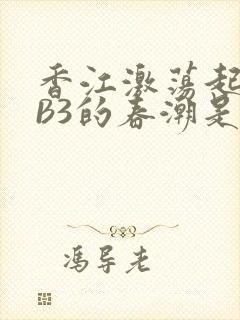 香江激荡起
B3的春潮是
冯导老